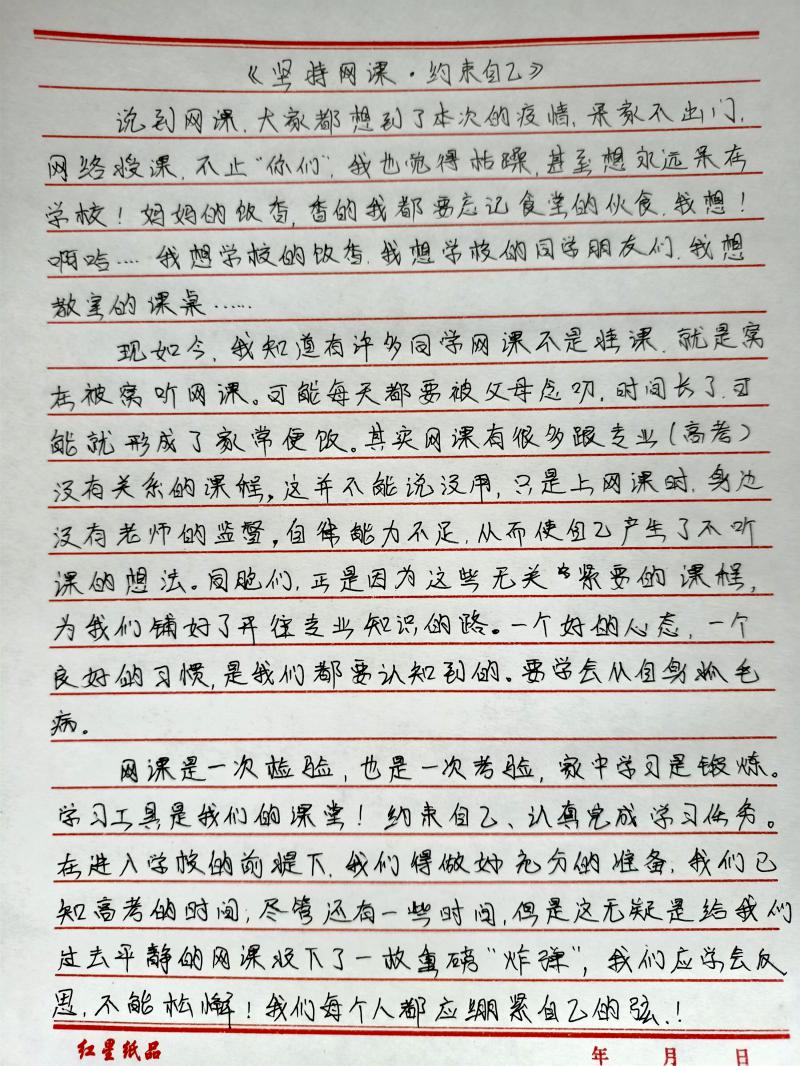 《坚持网课·约束自己》
说到网课，大家都想到了本次的疫情，呆家不出门，
网络授课，不止“你们”，我也觉得枯躁，甚至想永远呆在
学校！妈妈的饭香，香的我都要忘记食堂的伙食，我想！
啊哈……我想学校的饭香，我想学校的同学朋友们，我想
教室的课桌……
现如今，我知道有许多同学网课不是挂课，就是窝
在被窝听网课。可能每天都要被父母念叨，时间长了，可
能就形成了家常便饭。其实网课有很多跟专业（高考）
没有关系的课程，这并不能说没用，只是上网课时，身边
没有老师的监督，自律能力不足，从而使自己产生了不听
课的想法。同胞们，正是因为这些无关紧要的课程，
为我们铺好了开往专业知识的路。一个好的心态，一个
良好的习惯，是我们都要认知到的。要学会从自身抓毛
病。
网课是一次检验，也是一次考验，家中学习是锻炼。
学习工具是我们的课堂！约束自己、认真完成学习任务。
在进入学校的前提下，我们得做好充分的准备，我们已
知高考的时间；尽管还有一些时间，但是这无疑是给我们
过去平静的网课投下了一枚重磅“炸弹”，我们应学会反
思，不能松懈！我们每个人都应绷紧自己的弦！
红星纸品 年 月 日